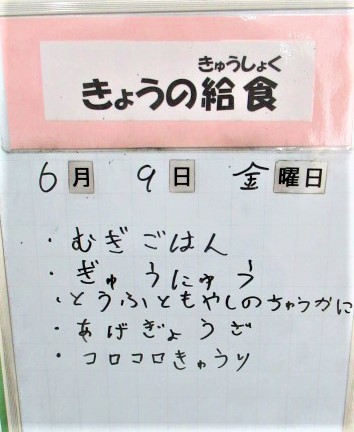 きゅうしょく
きょうの給食
6月 9日 金曜日
・むぎごはん
・ぎゅうにゅう
・とうふともやしのちゅうかに
・あげぎょうざ
・コロコロきゅうり